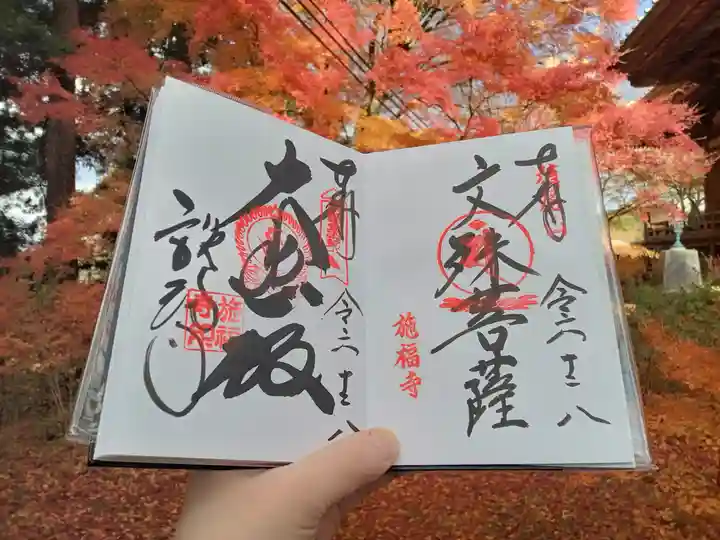 奉拝
文殊菩薩
令六十二八
施福寺
奉拝
大悲殿
令六十二八
施福寺